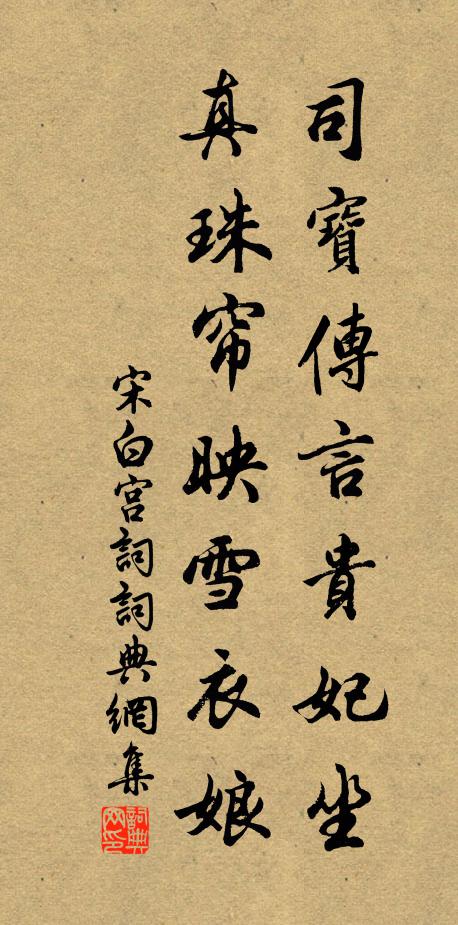 司寶傳言貴妃坐
真珠帘映雪衣娘
宋白宮詞詞典網集
詞典網印